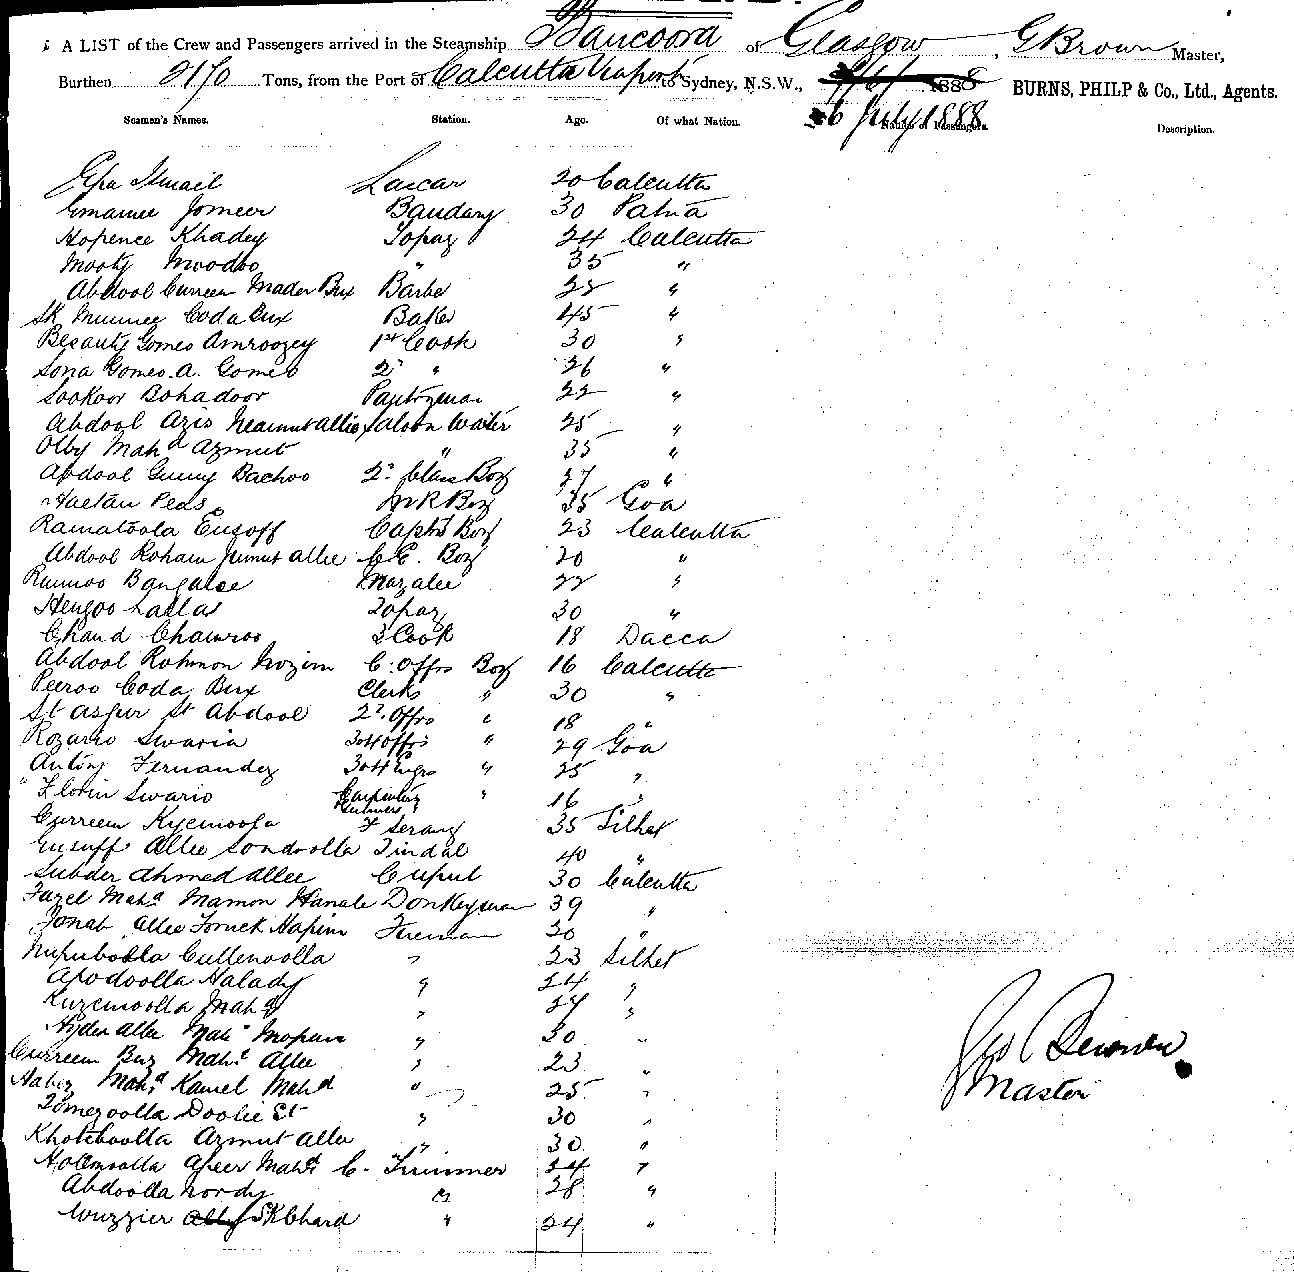 A LIST of the Crew and Passengers arrived in the Steamship Bancoora of Glasgow, G Brown Master,
Burthen 2170 Tons, from the Port of Calcutta via ports to Sydney, N.S.W., 1888 BURNS, PHILP & Co., Ltd., Agents.
6 July 1888
Seamen's Names. Station. Age. Of what Nation. Names of Passengers. Description.
Ismail Lascar 20 Calcutta
Emamee Jomeer Bandary 30 Patna
Hopence Khadey Topaz 24 Calcutta
Mooty Moodoo " 35 "
Abdool Curreem Mader Bux Barber 22 "
Sk Munnee Coda Bux Baker 45 "
Besanty Gomes Amroozey 1st Cook 30 "
Sona Gomes. A. Gomes 2d " 26 "
Sookoor Bohadoor Pantryman 22 "
Abdool Azis Neamut Allie Saloon Waiter 25 "
Olby Mahd Azmut " 35 "
Abdool Gunny Bachoo 2d Class Boy 27 "
Caetan Peas M R Boy 35 Goa
Ramatoola Eusoff Capts Boy 23 Calcutta
Abdool Roham Jumut Allie C.E. Boy 20 "
Rumoo Bangalee Mazalee 22 "
Hengoo Lalla Topaz 30 "
Chand Chamroo 3 Cook 18 Dacca
Abdool Rohmon Nozim C. Offrs Boy 16 Calcutta
Peeroo Coda Bux Clerks " 30 "
St Asgur St Abdool 2d Offrs " 18 "
Rozario Swaria 3 & 4 Offrs " 29 Goa
Antony Fernandez 3 & 4 Engrs " 25 "
Florin Swario Carpenters " 16 "
Curreem Kycmoola F Serang 35 Silhet
Eusuff Allee Sondoolla Tindal 40 "
Subder Ahmed Allee 30 Calcutta
Fuzel Mahd Mamon Hanate Donkeyman 39 "
Jonab Allee Toruck Hapim Fireman 30 "
Cullenoolla " 23 Silhet
Apodoolla Halady " 24 "
Kuzemoolla Mahd " 27 "
Hyder Allee Mahd Mopun " 30 "
Curreem Bux Mahd Allee " 23 "
Mahd Kamel Mahd " 25 "
Tomezoolla Doolie St " 30 "
Khoteboolla Azmut Allee " 30 "
Hotemoolla Afeer Mahd C. Trimmer 24 "
Abdoolla Nordy " 28 "
Wuzzier Sk Chard " 24 "
Geo Brown
Master